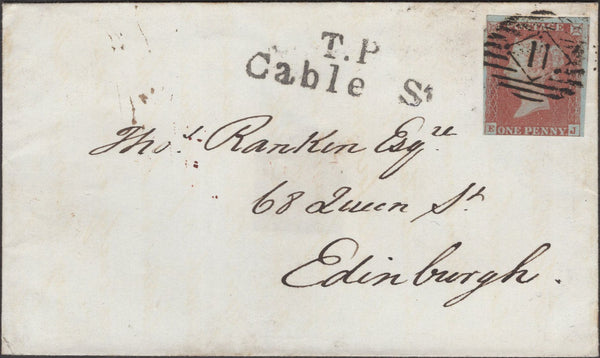 T.P
Cable St
11
E ONE PENNY J
Thos. Rankin Esqre
68 Queen St
Edinburgh.